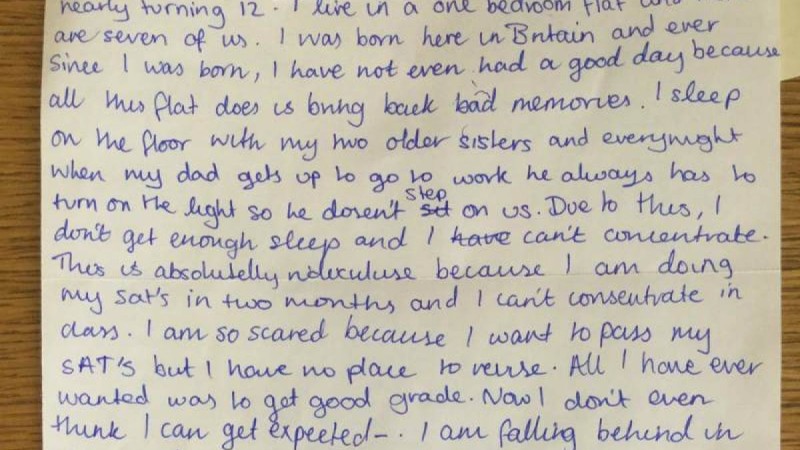 nearly turning 12. I live in a one bedroom flat and
are seven of us. I was born here in Britain and ever
since I was born, I have not even had a good day because
all this flat does is bring back bad memories. I sleep
on the floor with my two older sisters and everynight
when my dad gets up to go to work he always has to
turn on the light so he dosen't set step on us. Due to this, I
don't get enough sleep and I have can't concentrate.
This is absolutelly rideculuse because I am doing
my sat's in two months and I can't consentrate in
class. I am so scared because I want to pass my
SAT's but I have no place to revise. All I have ever
wanted was to get good grade. Now I don't even
think I can get expected-. I am falling behind in